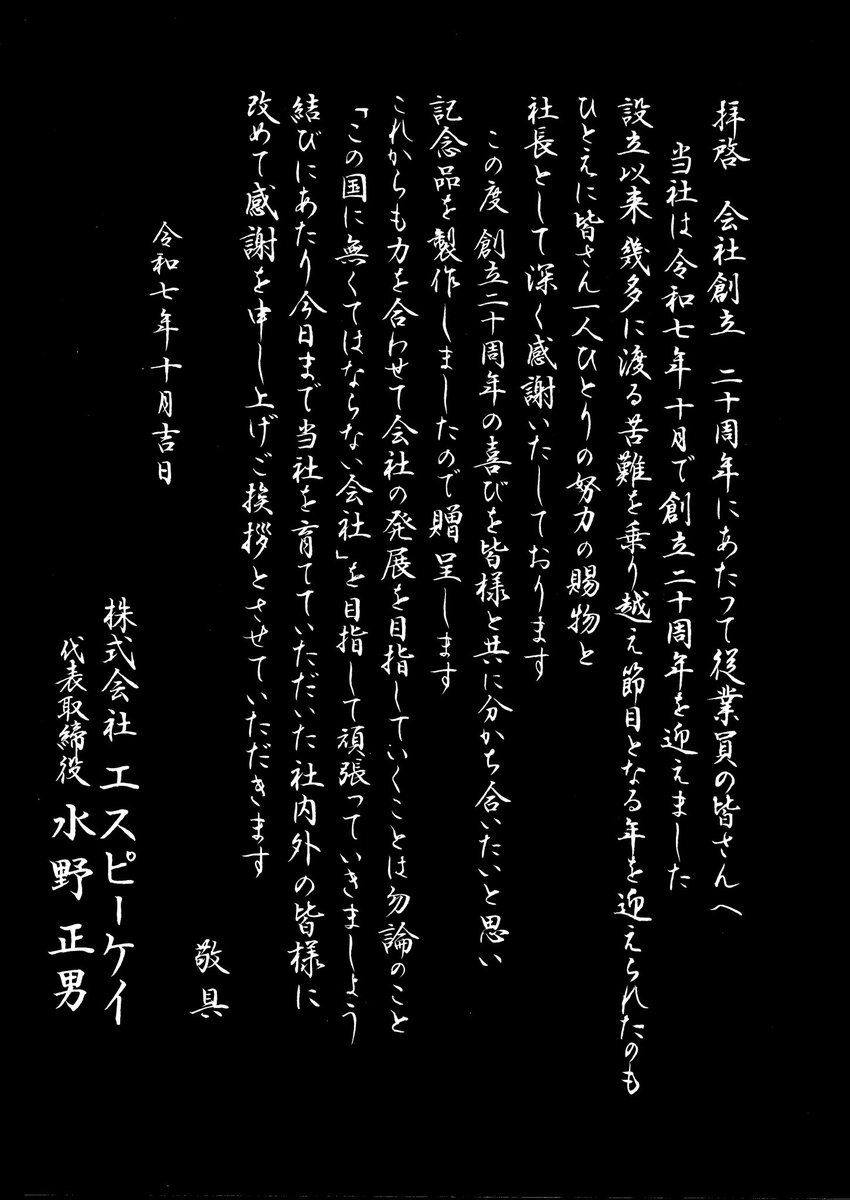 拝啓　会社創立　二十周年にあたって従業員の皆さんへ
当社は令和七年十月で創立二十周年を迎えました
設立以来 幾多に渡る苦難を乗り越え節目となる年を迎えられたのも
ひとえに皆さん一人ひとりの努力の賜物と
社長として深く感謝いたしております
この度 創立二十周年の喜びを皆様と共に分かち合いたいと思い
記念品を製作しましたので贈呈します
これからも力を合わせて会社の発展を目指していくことは勿論のこと
「この国に無くてはならない会社」を目指して頑張っていきましょう
結びにあたり今日まで当社を育てていただいた社内外の皆様に
改めて感謝を申し上げご挨拶とさせていただきます
敬具
令和七年十月吉日
株式会社 エスピーケイ
代表取締役 水野 正男